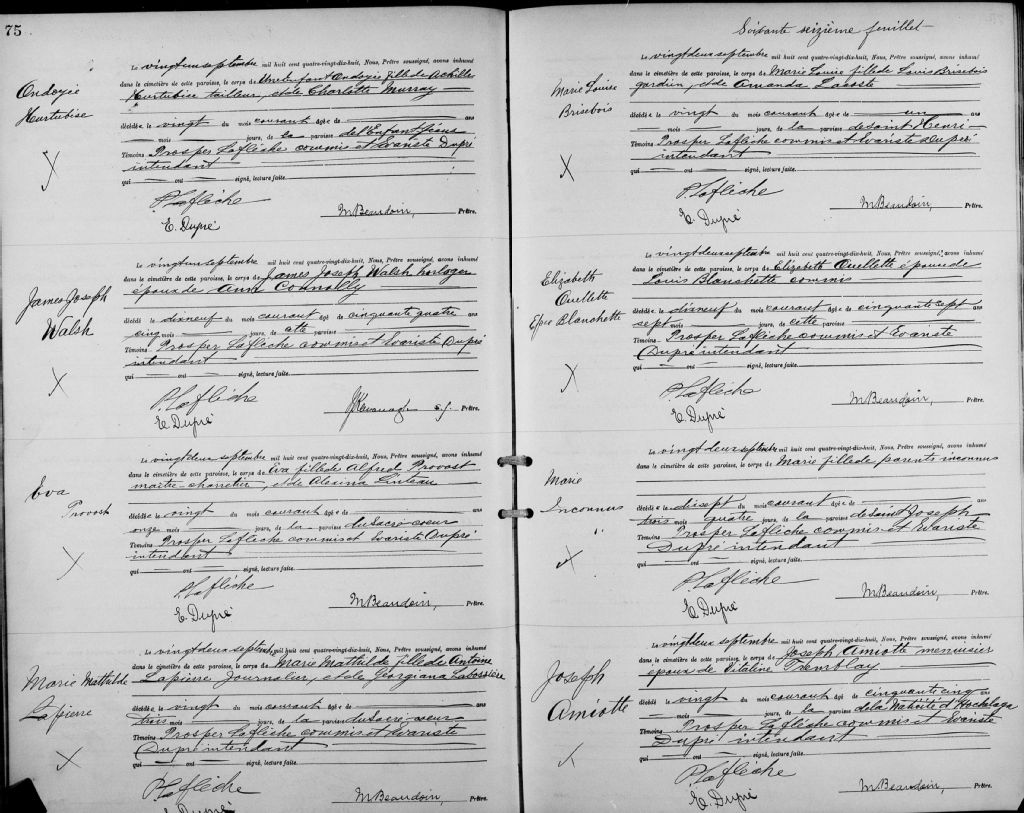 75
Ondoyée
Hurtubise
Le vingt un septembre mil huit cent quatre-vingt-dix-huit, Nous, Prêtre soussigné, avons inhumé
dans le cimetière de cette paroisse, le corps de Un Enfant Ondoyée fille de Achilles
Hurtubise tailleur, et de Charlotte Murray
décédée le vingt du mois courant âgée de ans
mois jours, de la paroisse de l'Enfant Jésus
Témoins Prosper Laflèche commis et Evariste Dupré
intendant
qui ont signé, lecture faite.
P. Laflèche
E. Dupré
M Beaudoin, Prêtre.
James Joseph
Walsh
Le vingt un septembre mil huit cent quatre-vingt-dix-huit, Nous, Prêtre soussigné, avons inhumé
dans le cimetière de cette paroisse, le corps de James Joseph Walsh horloger
époux de Ann Connolly
décédé le dixneuf du mois courant âgé de cinquante quatre ans
cinq mois jours, de cette paroisse
Témoins Prosper Laflèche commis et Evariste Dupré
intendant
qui ont signé, lecture faite.
P. Laflèche
E. Dupré
Kavanagh s.j. Prêtre.
Eva
Provost
Le vingt deux septembre mil huit cent quatre-vingt-dix-huit, Nous, Prêtre soussigné, avons inhumé
dans le cimetière de cette paroisse, le corps de Eva fille de Alfred Provost
maître-charretier, et de Alexina Linteau
décédée le vingt du mois courant âgée de ans
onze mois jours, de la paroisse du Sacré-coeur
Témoins Prosper Laflèche commis et Evariste Dupré
intendant
qui ont signé, lecture faite.
P. Laflèche
E. Dupré
M Beaudoin, Prêtre.
Marie Mathilde
Lapierre
Le vingt deux septembre mil huit cent quatre-vingt-dix-huit, Nous, Prêtre soussigné, avons inhumé
dans le cimetière de cette paroisse, le corps de Marie Mathilde fille de Antoine
Lapierre Journalier, et de Georgiana Labossière
décédée le vingt du mois courant âgée de ans
trois mois jours, de la paroisse du Sacré-coeur
Témoins Prosper Laflèche commis et Evariste
Dupré intendant
qui ont signé, lecture faite.
P. Laflèche
E. Dupré
M Beaudoin, Prêtre.
Soixante seizième feuillet
Marie Louise
Brisebois
Le vingt deux septembre mil huit cent quatre-vingt-dix-huit, Nous, Prêtre soussigné, avons inhumé
dans le cimetière de cette paroisse, le corps de Marie Louise fille de Louis Brisebois
gardien, et de Amanda Lacoste
décédée le vingt du mois courant âgée de un ans
mois jours, de la paroisse de Saint Henri
Témoins Prosper Laflèche commis et Evariste Dupré
intendant
qui ont signé, lecture faite.
P. Laflèche
E. Dupré
M Beaudoin, Prêtre.
Elizabeth
Ouellette
Epse Blanchette
Le vingt deux septembre mil huit cent quatre-vingt-dix-huit, Nous, Prêtre soussigné, avons inhumé
dans le cimetière de cette paroisse, le corps de Elizabeth Ouellette épouse de
Louis Blanchette commis
décédée le dixneuf du mois courant âgée de cinquante sept ans
sept mois jours, de cette paroisse
Témoins Prosper Laflèche commis et Evariste
Dupré intendant
qui ont signé, lecture faite.
P. Laflèche
E. Dupré
M Beaudoin, Prêtre.
Marie
Inconnus
Le vingt deux septembre mil huit cent quatre-vingt-dix-huit, Nous, Prêtre soussigné, avons inhumé
dans le cimetière de cette paroisse, le corps de Marie fille de parents inconnus
décédée le dixsept du mois courant âgée de ans
trois mois quatre jours, de la paroisse de Saint Joseph
Témoins Prosper Laflèche commis et Evariste
Dupré intendant
qui ont signé, lecture faite.
P. Laflèche
E. Dupré
M Beaudoin, Prêtre.
Joseph
Amiotte
Le vingt deux septembre mil huit cent quatre-vingt-dix-huit, Nous, Prêtre soussigné, avons inhumé
dans le cimetière de cette paroisse, le corps de Joseph Amiotte menuisier
époux de Vitaline Tremblay
décédé le vingt du mois courant âgé de cinquante cinq ans
mois jours, de la paroisse de la Nativité d'Hochelaga
Témoins Prosper Laflèche commis et Evariste
Dupré intendant
qui ont signé, lecture faite.
P. Laflèche
E. Dupré
M Beaudoin, Prêtre.